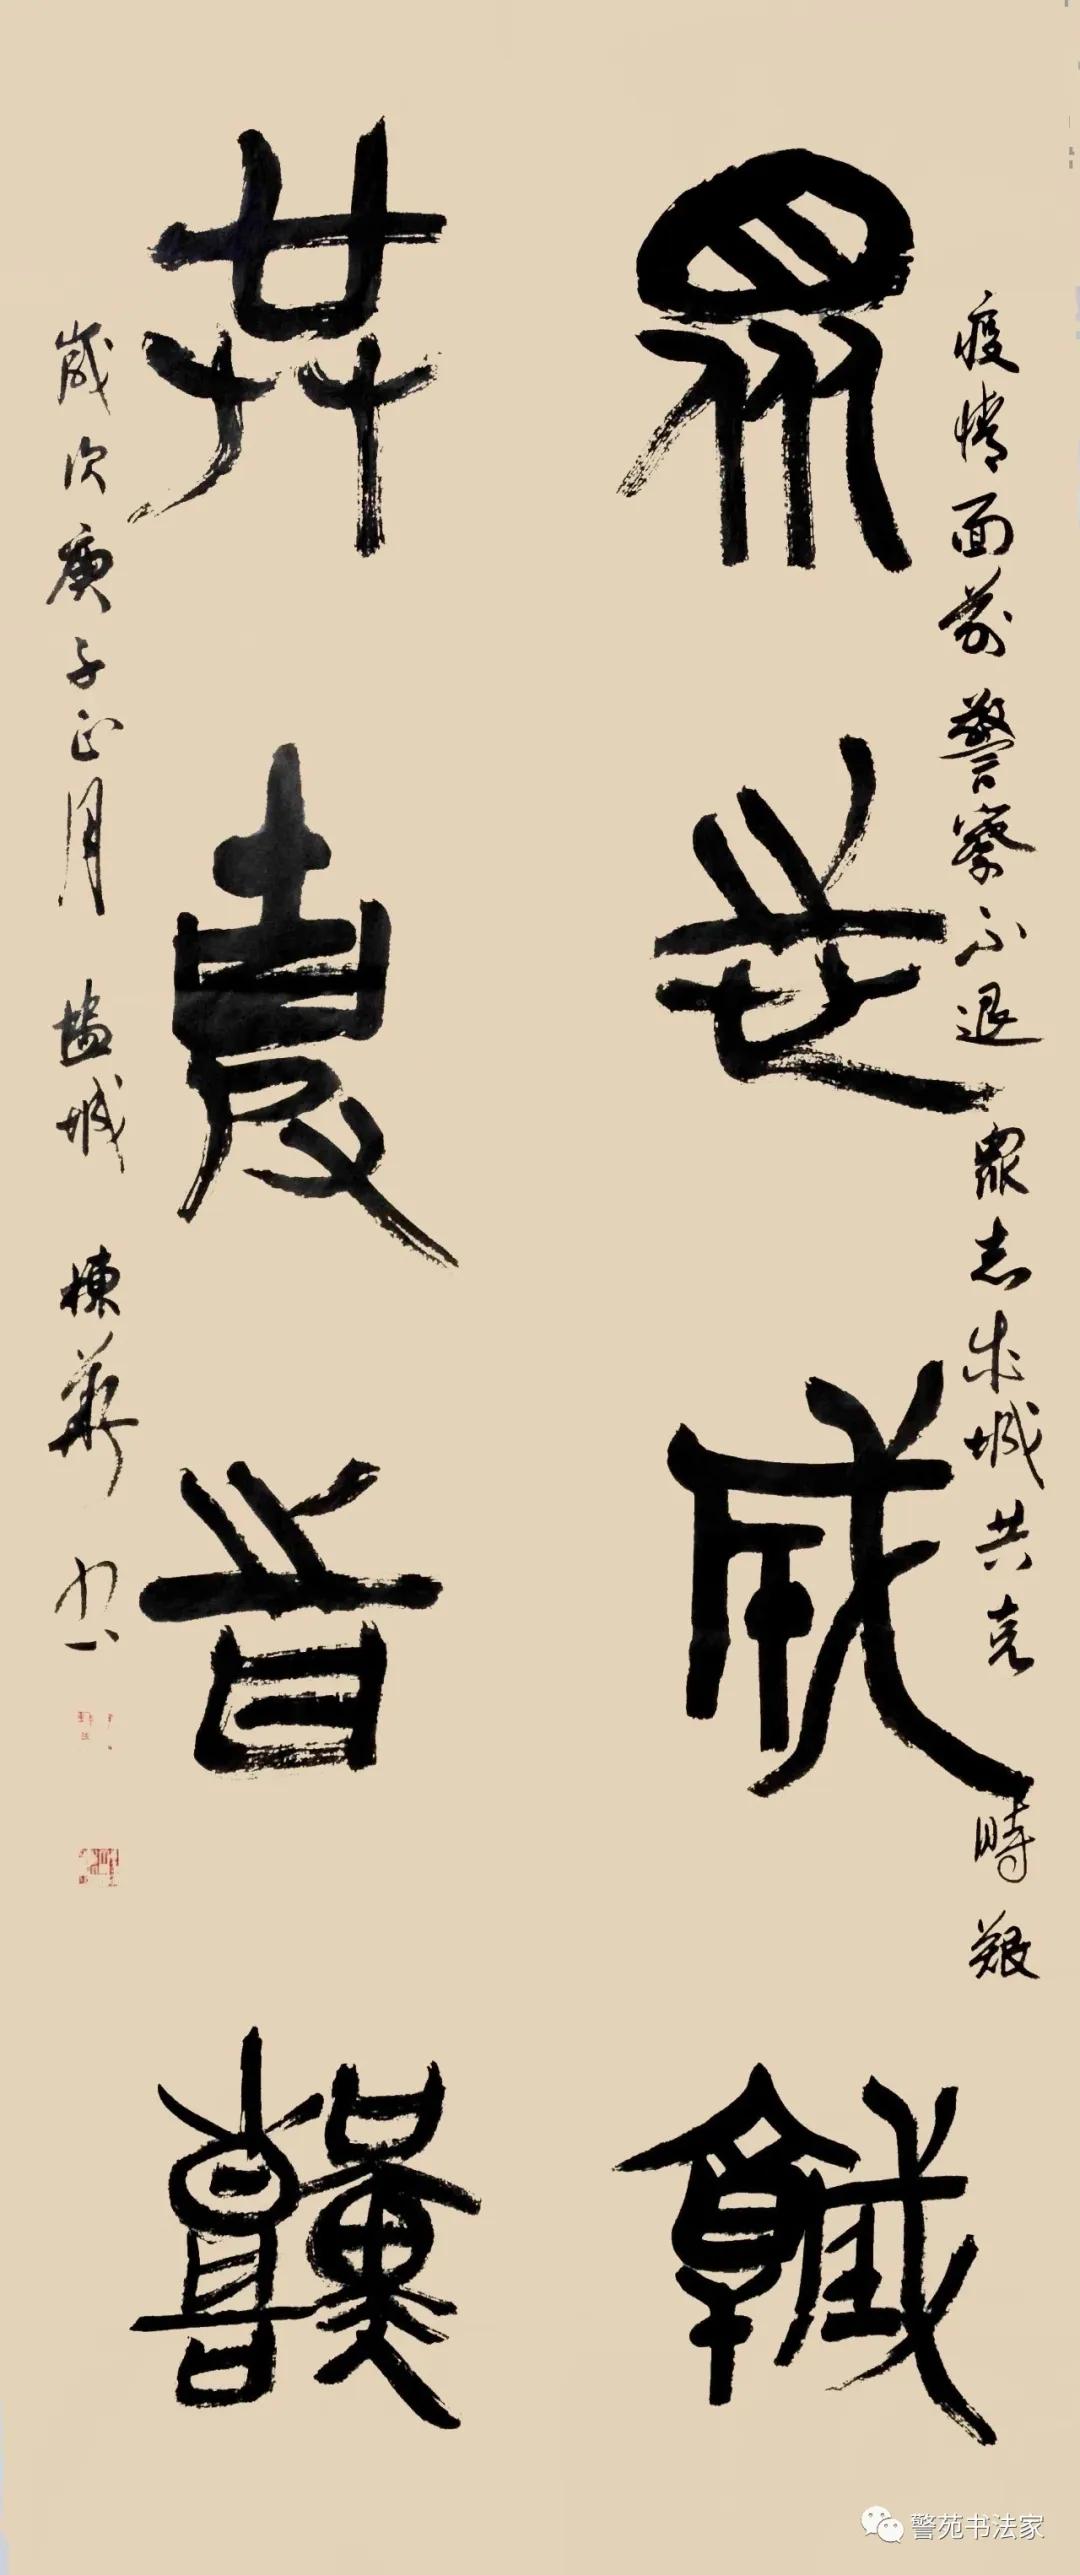 疫情面前警察不退眾志成城共克時艱
眾志成城
共克時艱
歲次庚子正月 塩城 棟華书
警苑书法家